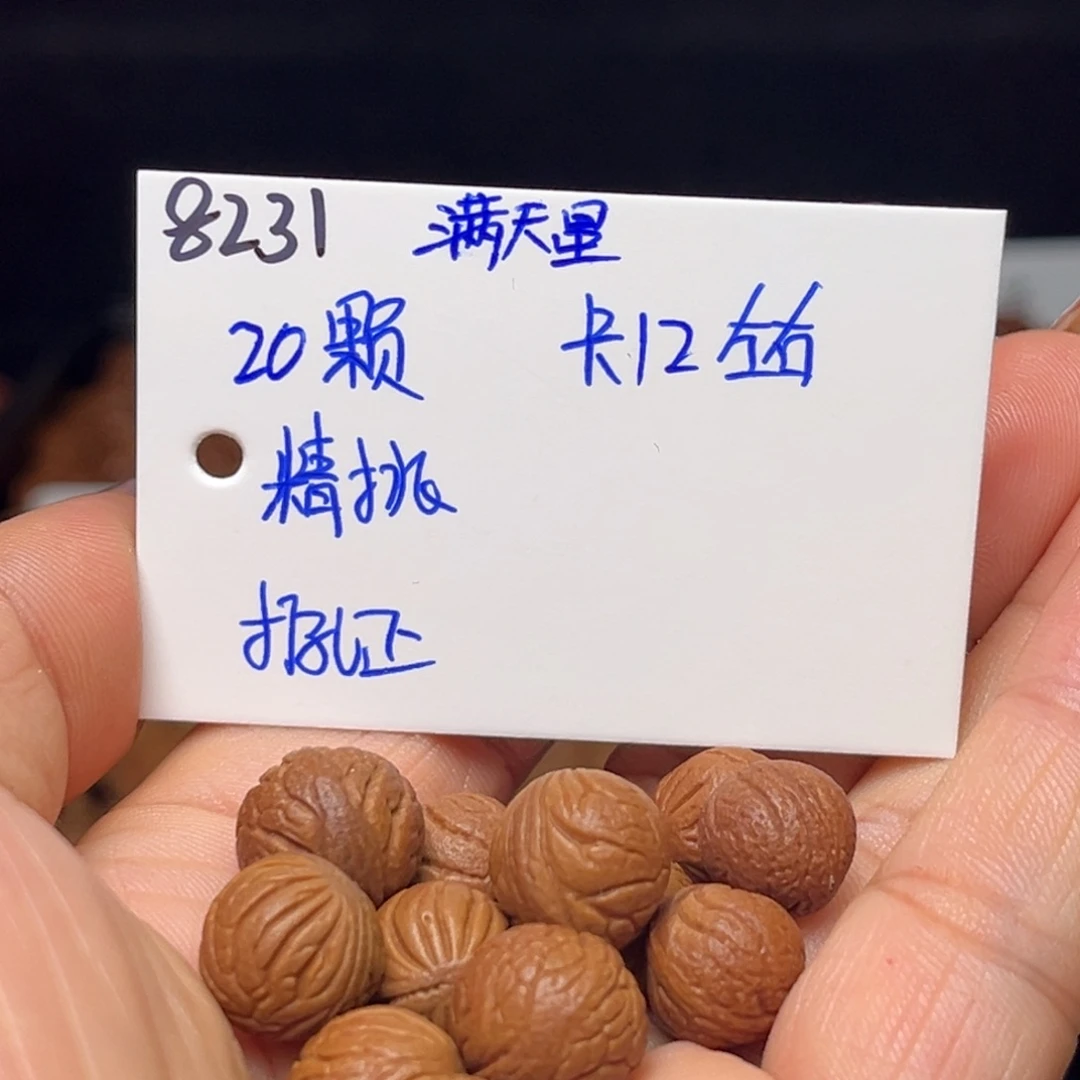 8231 满天星
20颗 卡12左右
精挑
打孔正